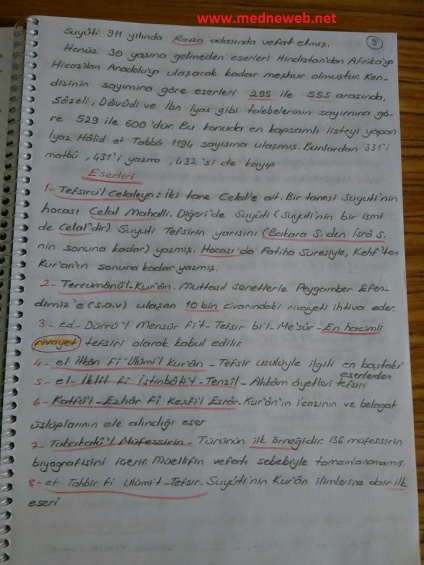 www.medneweb.net
Suyûti 911 yılında Ravza adasında vefat etmiş.
Henüz 30 yaşına gelmeden eserleri Hindistan'dan Afrika'ya
Hicaz'dan Anadolu'ya ulaşacak kadar meşhur olmuştur. Ken-
disinin sayımına göre eserleri 295 ile 555 arasında,
Şâzelî, Dâvûdi ve İbn İyas gibi talebelerinin sayımına gö-
re 529 ile 600'dur. Bu konuda en kapsamlı listeyi yapan
İyaz Hâlid et Tabbâ 1194 sayısına ulaşmış. Bunlardan 331'i
matbû, 431'i yazma, 432'si de kayıp
Eserleri
1- Tefsiru'l Celaleyn: İki tane Celal'e ait. Bir tanesi Suyuti'nin
hocası Celal Mahalli. Diğeri'de Suyûti (Suyuti'nin bir ismi
de Celal'dir) Suyuti Tefsirin yarısını (Bakara S. den İsrâ S.
nin sonuna kadar) yazmış. Hocası'da Fatiha Suresiyle, Kehf'ten
Kur'an'ın sonuna kadar yazmış.
2- Tercümânü'l-Kur'ân. Muttasıl senetlerle Peygamber Efen-
dimiz'e (s.a.v) ulaşan 10 bin civarındaki rivayeti ihtiva eder.
3- ed-Dürrü'l Mensûr fi't-Tefsir bi'l-Me'sûr-En hacimli
rivayet tefsiri olarak kabul edilir
4- el İtkân fî Ulûmi'l Kur'ân - Tefsir usulüyle ilgili en baştaki
eserlerden
5- el-İklîl fi İstinbâti't-Tenzil - Ahkâm âyetleri tefsiri
6- Katfü'l-Ezhâr fî Keşfi'l Esrâr. Kur'ân'ın i'cazının ve belagat
üslüplarının ele alındığı eser
7- Tabakatü'l Müfessirin - Türünün ilk örneğidir. 136 müfessirin
biyografisini içerir. Müellifin vefatı sebebiyle tamamlanamamış.
8- et Tahbir fi Ulûmi't-Tefsir. Suyûti'nin Kur'ân ilimlerine dair ilk
eseri